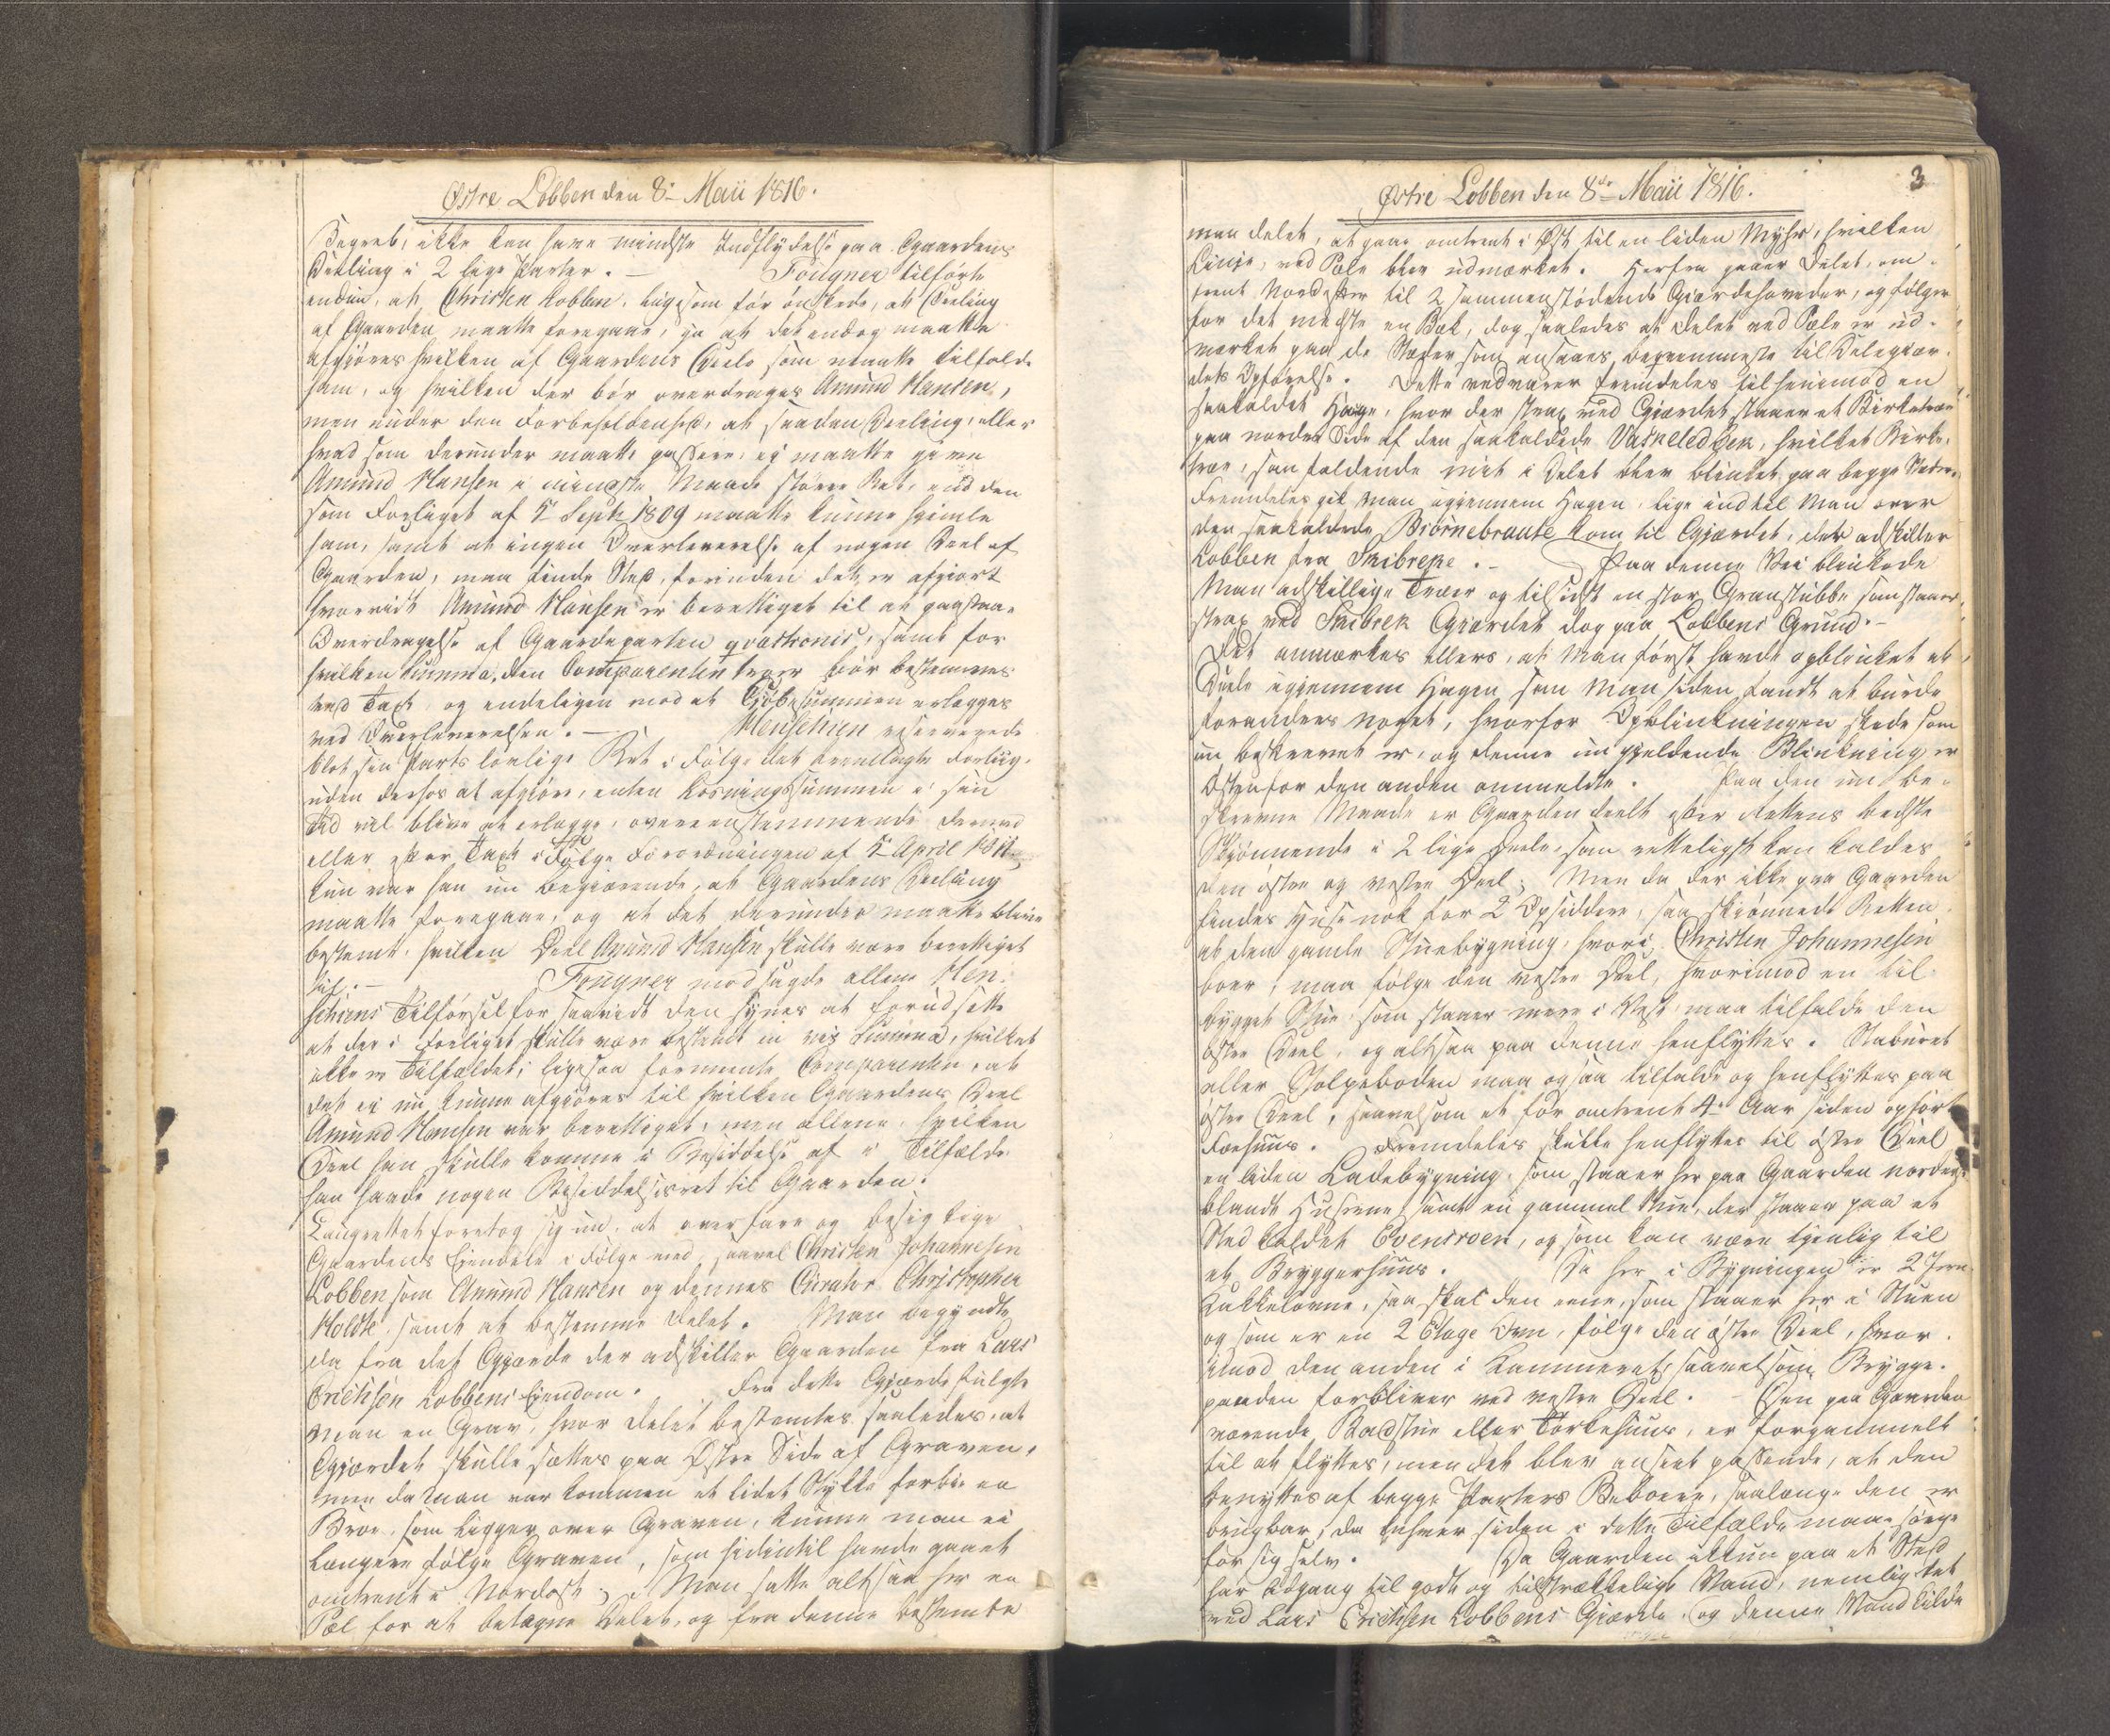 Østre Lobben den 8de Maii 1816.
Begreb, ikke kan have mindste Indflydelse paa Gaardens
Deeling i 2 lige Parter. — Fougner tilførte
endnu, at Christen Lobben, ligesom før ønskede, at Deeling
af Gaarden maatte foregaae, ja at det endog maatte
afgjøres hvilken af Gaardens Deele som maatte tilfalde
ham, og hvilken der bør overdrages Amund Hansen,
men under den Forbeholdenhed, at saadan Deeling, eller
hvad som derunder maatte passere, ei maatte give
Amund Hansen i mindste Maade større Ret, end den
som Forliget af 5te Septb 1809 maatte kunne hjemle
ham, samt at ingen Overleverelse af nogen Deel af
Gaarden, maa finde Sted, forinden det er afgjort
hvorvidt Amund Hansen er berettiget til at paastaae
Overdragelse af Gaardeparten qvæstionis, samt for
hvilken Summa, den Comparenten troer bør bestemmes
ved Taxt, og endeligen mod at Kjøbesummen erlægges
ved Overleverelsen. — Menschien reserverede
blot sin Parts lovlige Ret i Følge det fremlagte Forliig,
uden derhos at afgjøre, enten Løsningssummen i sin
Tid vil blive at erlægge, overeensstemmende dermed
eller efter Taxt i Følge Forordningen af 5te April
kun var han nu begjærende, at Gaardens Deeling
maatte foregaae, og at det derunder maatte blive
bestemt, hvilken Deel Amund Hansen skulle være berettiget
til. — Fougner modsagde allene Men-
schiens Tilførsel for saavidt den synes at forudsætte
at der i Forliget skulle være bestemt en vis Summa, hvilket
ikke er Tilfældet, ligesaa formeente Comparenten, at
det ei nu kunne afgjøres til hvilken Gaardens Deel
Amund Hansen var berettiget, men allene, hvilken
Deel han skulle komme i Besiddelse af i Tilfælde
han havde nogen Besiddelsesret til Gaarden.
Laugrettet foretog sig nu, at overfare og besigtige
Gaardens Eiendele i Følge med, saavel Christen Johannesen
Lobben som Amund Hansen og dennes Curator Christopher
Holdte, samt at bestemme Delet. Man begyndte
da fra det Gjærde der adskiller Gaarden fra Lars
Erichsen Lobbens Eiendom. Fra dette Gjærde fulgte
man en Grav, hvor Delet bestemtes saaledes, at
Gjærdet skulle sættes paa Østre Side af Graven,
men da man var kommen et lidet Stykke forbie en
Broe, som ligger over Graven, kunne man ei
længere følge Graven, som hidindtil havde gaaet
omtrent i Nordost; Man satte altsaa her en
Pæl for at betegne Delet, og fra denne bestemte
3
Østre Lobben den 8de Maii 1816.
man delet, at gaae omtrent i Øst til en liden Myhr, hvilken
Linje, ved Pæle blev udmærket. Herfra gaaer Delet, om-
trent Nord efter til 2 sammenstødende Gjærdehoveder, og følger
for det meeste en Bæk, dog saaledes at delet ved Pæle er ud-
mærket paa de Stæder som ansaaes beqvemmeste til Delegjær-
dets Opførelse. Dette vedvarer fremdeles til henimod en
saakaldet Hage, hvor der strax ved Gjærdet staaer et Birketræe
paa nordre Side af den saakaldede Vasneledbek, hvilket Birke-
træe, som faldende midt i Delet blev blinket paa begge Sider.
Fremdeles gik man igjennem Hagen, lige indtil Man over
den saakaldede Biørnebraate kom til Gjærdet, der adskiller
Lobben fra Skibreke. — Paa denne Vei blinkede
Man adskillige Træer og tilsidst en stor Granstubbe som staaer
strax ved Skibrek Gjærdet dog paa Lobbens Grund. —
Det anmærkes ellers, at Man først havde opblinket et
Deele igjennem Hagen, som Man siden fandt at burde
forandres noget, hvorfor Opblinkningen skede som
nu beskrevet er, og denne nu gjeldende Blinkning er
Østenfor den anden anmeldte. Paa den nu be-
skrevne Maade er Gaarden deelt efter Rettens bedste
Skjønnende i 2 lige Deele, som rettelligst kan kaldes
den østre og vestre Deel; Men da der ikke paa Gaarden
findes Huse nok for 2 Opsiddere, saa skjønnede Retten
at den gamle Stuebygning, hvori Christen Johannesen
boer, maa følge den vestre Deel, hvorimod en til-
bygget Stue, som staaer mere i Vest, maa tilfalde den
østre Deel, og altsaa paa denne henflyttes. Staburet
eller Stolpeboden maa ogsaa tilfalde og henflyttes paa
østre Deel, saavelsom et for omtrent 4 Aar siden opført
Faehuus. Fremdeles skulle henflyttes til østre Deel
en liden Ladebygning, som staaer her paa Gaarden norden-
blandt Husene, samt en gammel Stue, der staaer paa et
Sted kaldet Evensroen, og som kan være tjenlig til
et Bryggerhuus. Da her i Bygningen er 2 Jern
Kakkelovne, saa skal den eene, som staaer her i Stuen
og som er en 2 Etage Ovn, følge den østre Deel, hvor-
imod den anden i Kammeret, saavelsom Brygge-
panden forbliver ved vestre Deel. — Den paa Gaarden
værende Badstue eller Tørkehuus, er forgammelt
til at flyttes, men det blev anseet passende, at den
benyttes af begge Parters Beboere, saalænge den er
brugbar, da enhver siden i dette Tilfælde maae sørge
for sig selv. Da Gaarden ikkun paa et Sted
har Adgang til godt og tilstrækkeligt Vand, nemlig tæt
ved Lars Erichsen Lobbens Gjærde, og denne Vandkilde